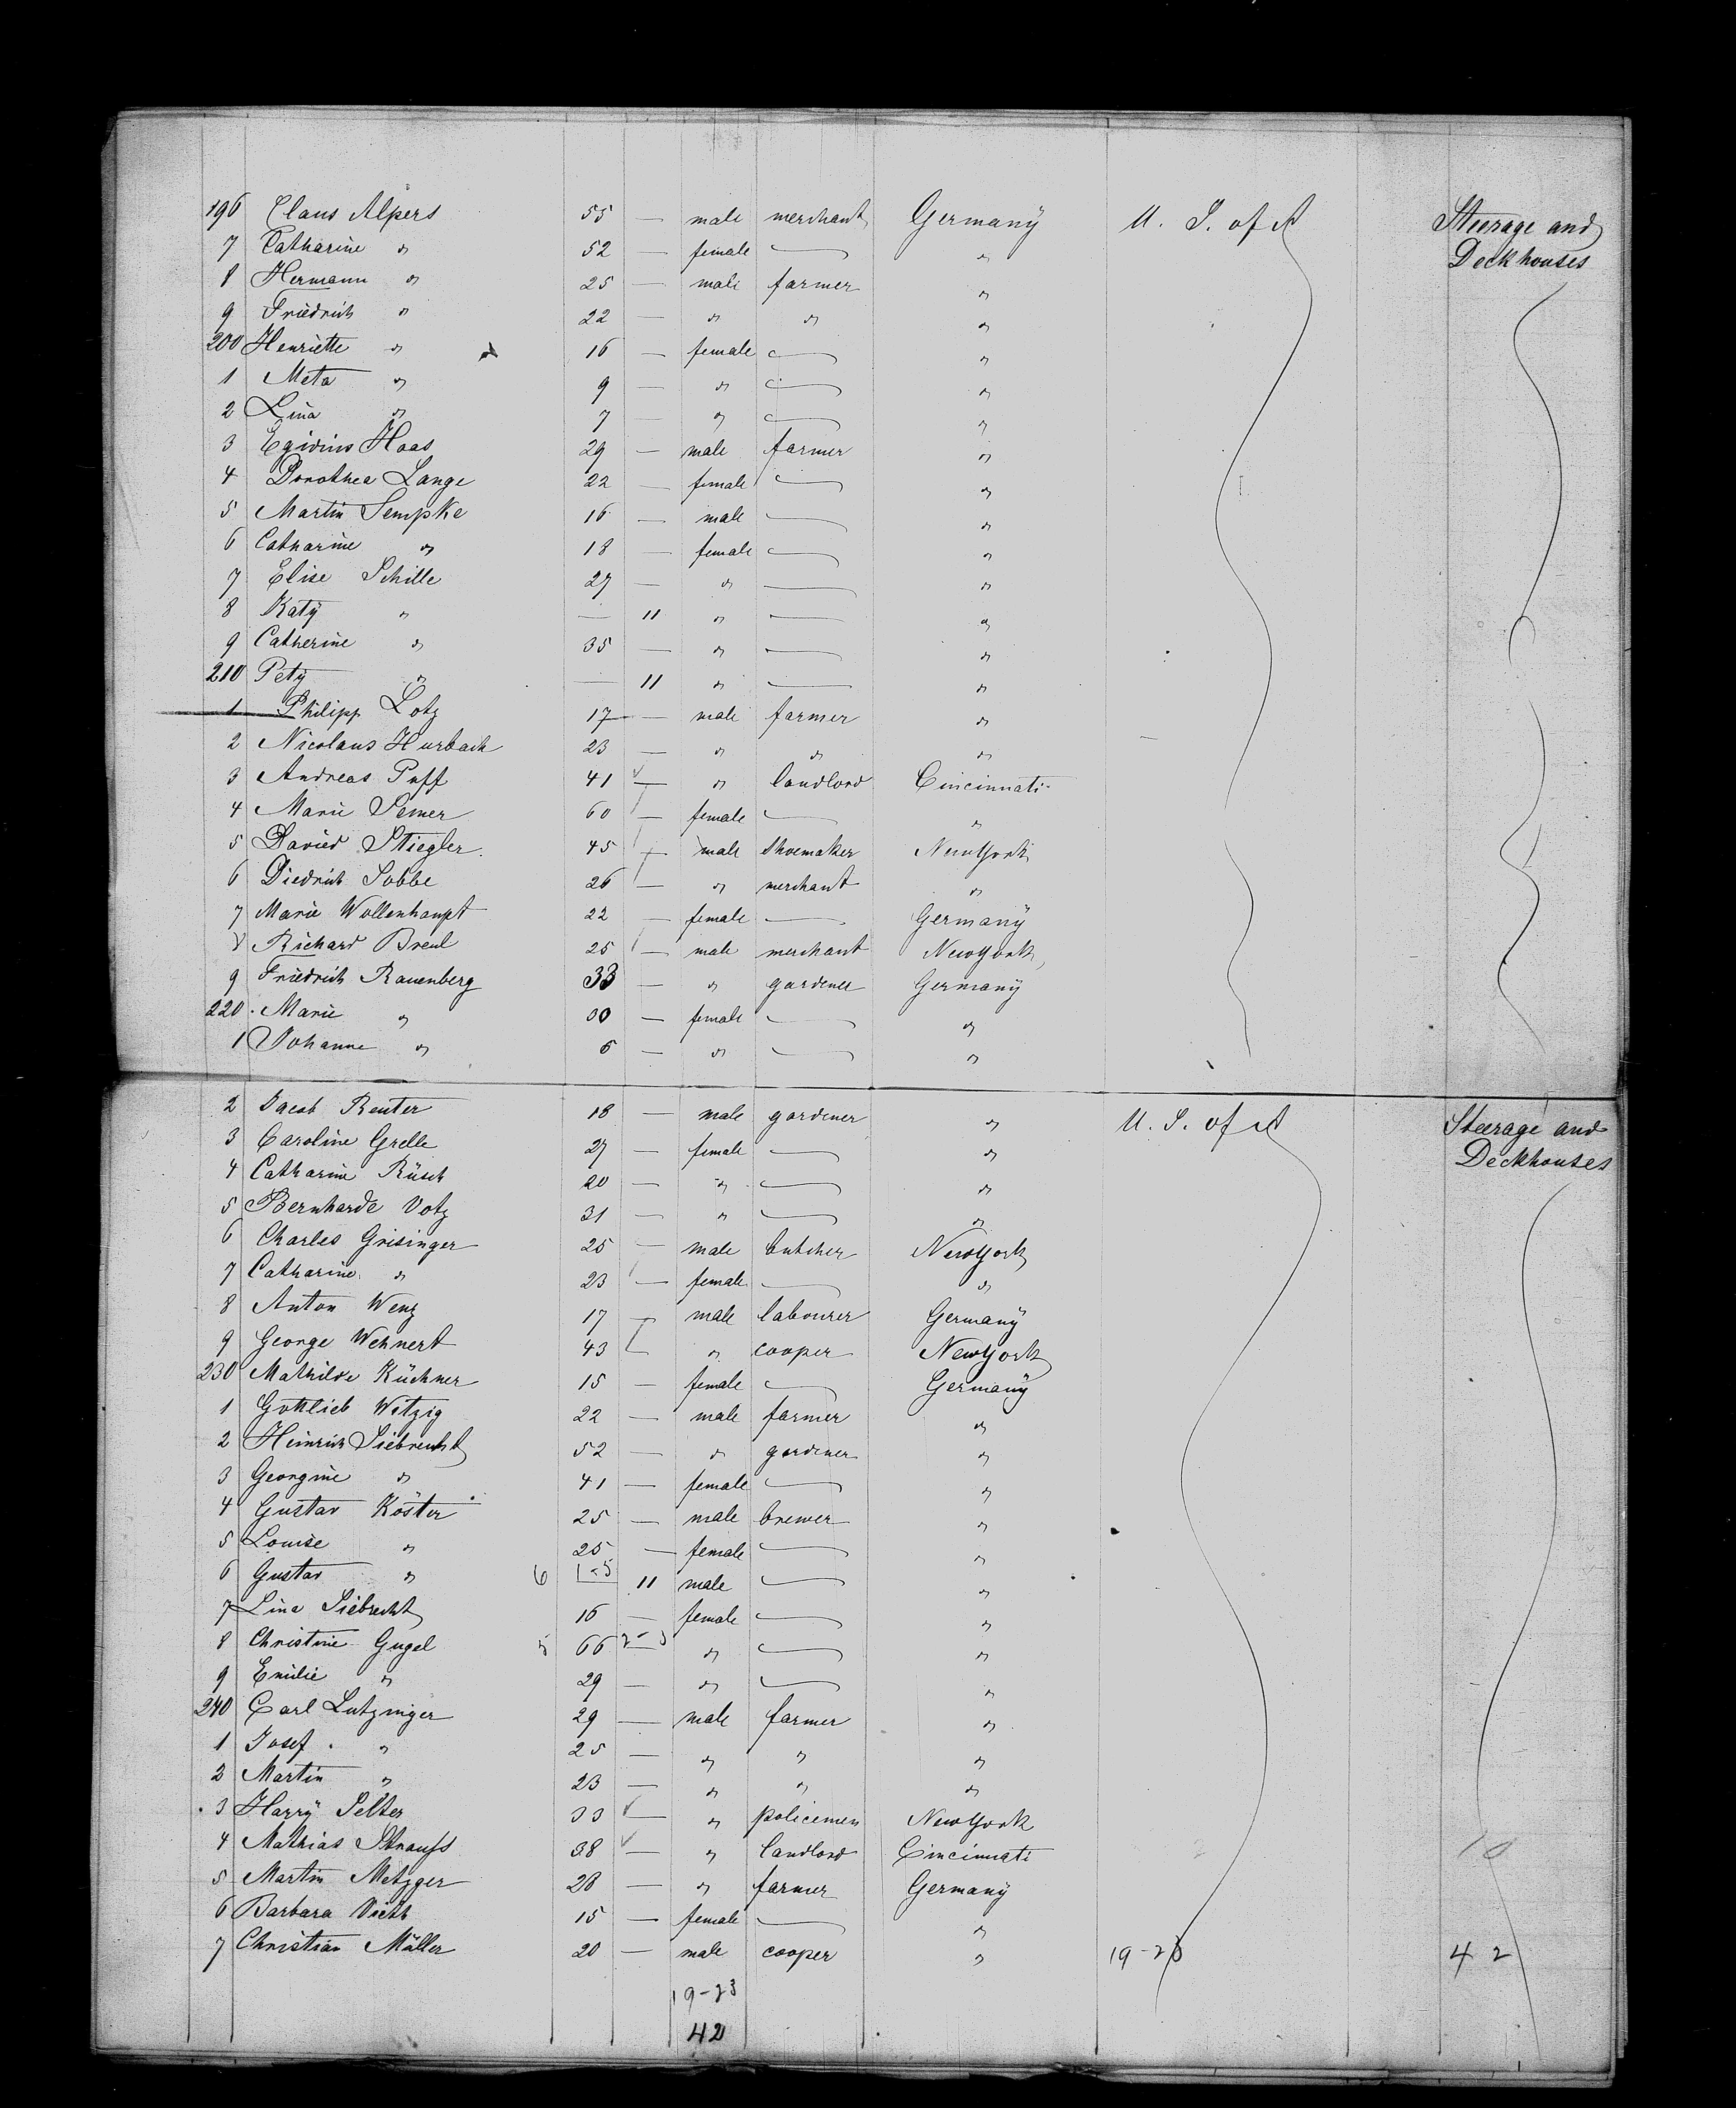 196 Claus Alpers 55 — male merchant Germany U. S. of A Steerage and
7 Catharine " 52 — female — " Deckhouses
8 Hermann " 25 — male farmer "
9 Friedrich " 22 — " " "
200 Henriette " 16 — female — "
1 Meta " 9 — " — "
2 Lina " 7 — " — "
3 Egidius Haas 29 — male farmer "
4 Dorothea Lange 22 — female — "
5 Martin Sempke 16 — male — "
6 Catharine " 18 — female — "
7 Elise Schille 27 — " — "
8 Katy " — 11 " — "
9 Catherine " 35 — " — "
210 Pety " — 11 " — "
1 Philipp Lotz 17 — male farmer "
2 Nicolaus Hurbach 23 — " " "
3 Andreas Puff 41 — " landlord Cincinnati
4 Marie Semer 60 — female — "
5 David Stiegler 45 — male shoemaker NewYork
6 Diedrich Sobbe 26 — " merchant "
7 Marie Wollenhaupt 22 — female — Germany
8 Richard Breul 25 — male merchant NewYork
9 Friedrich Rauenberg 33 — " gardener Germany
220 Marie " 30 — female — "
1 Johanne " 6 — " — "
2 Jacob Reuter 18 — male gardener " U. S. of A Steerage and
3 Caroline Grelle 27 — female — " Deckhouses
4 Catharine Rüsch 20 — " — "
5 Bernharde Votz 31 — " — "
6 Charles Grisinger 25 — male butcher NewYork
7 Catharine " 23 — female — "
8 Anton Wenz 17 — male labourer Germany
9 George Wehnert 43 — " cooper NewYork
230 Mathilde Küchner 15 — female — Germany
1 Gottlieb Witzig 22 — male farmer "
2 Heinrich Siebrecht 52 — " gardener "
3 Georgine " 41 — female — "
4 Gustav Köster 25 — male brewer "
5 Louise " 25 — female — "
6 Gustav " 6 1-5 11 male — "
7 Lina Siebrecht 16 — female — "
8 Christine Gugel 5 66 2-3 " — "
9 Emilie " 29 — " — "
240 Carl Lutzinger 29 — male farmer "
1 Josef " 25 — " " "
2 Martin " 23 — " " "
3 Harry Selter 33 — " policemen NewYork
4 Mathias Strauss 38 — " landlord Cincinnati 10
5 Martin Metzger 28 — " farmer Germany
6 Barbara Vieth 15 — female — "
7 Christian Müller 20 — male cooper " 19-23 42
19-23
42